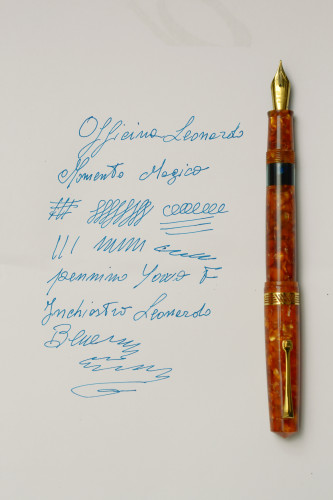 Officina Leonardo
Momento Magico
pennino Yowo F
Inchiostro Leonardo